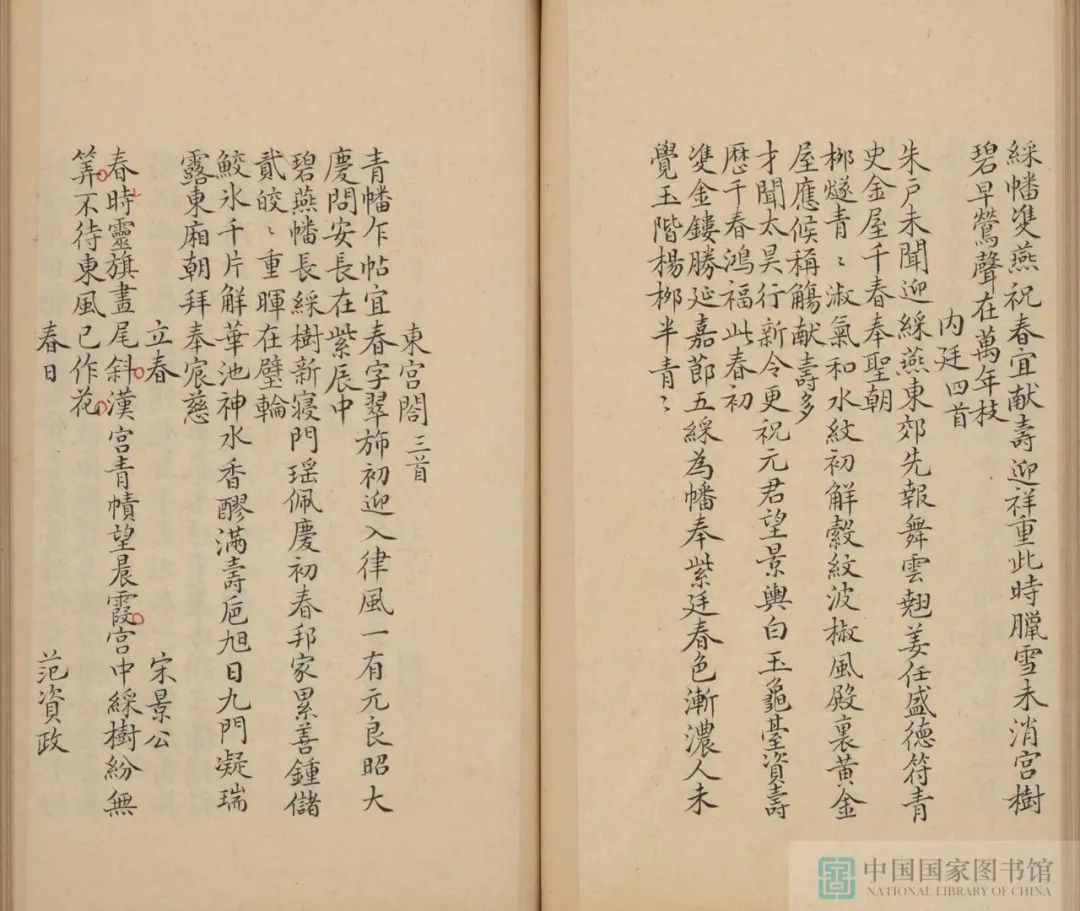 綵幡雙燕祝春宜献壽迎祥重此時臘雪未消宫樹
碧早鶯聲在萬年枝
内廷四首
朱户未聞迎綵燕東郊先報舞雲翹姜任盛德符青
史金屋千春奉聖朝
栁燧青〻淑氣和水紋初解縠紋波椒風殿裏黄金
屋應候稱觴献壽多
才聞太昊行新令更祝元君望景輿白玉龜臺資壽
歷千春鴻福此春初
雙金鏤勝延嘉節五綵為幡奉紫廷春色漸濃人未
覺玉階楊栁半青〻
東宫閤三首
青幡乍帖宜春字翠斾初迎入律風一有元良昭大
慶問安長在紫辰中
碧燕幡長綵樹新寢門瑶佩慶初春邦家累善鍾儲
貳皎〻重暉在璧輪
鮫氷千片解華池神水香醪满壽巵旭日九門凝瑞
露東廂朝拜奉宸慈
立春 宋景公
春時靈旗畫尾斜漢宫青幘望晨霞宫中綵樹紛無
筭不待東風已作花
春日 范資政
中国国家图书馆
NATIONAL LIBRARY OF CHINA